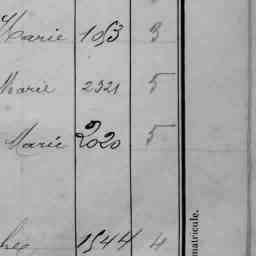 Marie 1053 3
Marie 2321 5
Marie 2020 5
1544 4
matricule.